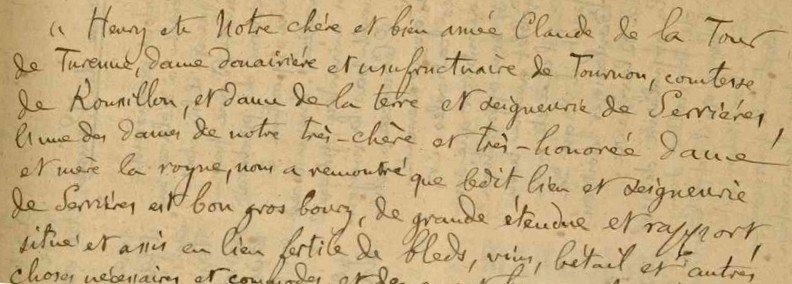 « Henry etc Notre chère et bien amée Claude de la Tour
de Turenne, dame douairière et usufructuaire de Tournon, comtesse
de Rousillon, et dame de la terre et seigneurie de Serrières,
l'une des dames de notre très-chère et très-honorée dame
et mère la royne, nous a remontré que ledit lieu et seigneurie
de Serrières est bon gros bourg, de grande étendue et rapport,
situé et assis en lieu fertile de bleds, vins, bétail et autres
choses nécessaires et commodes et de